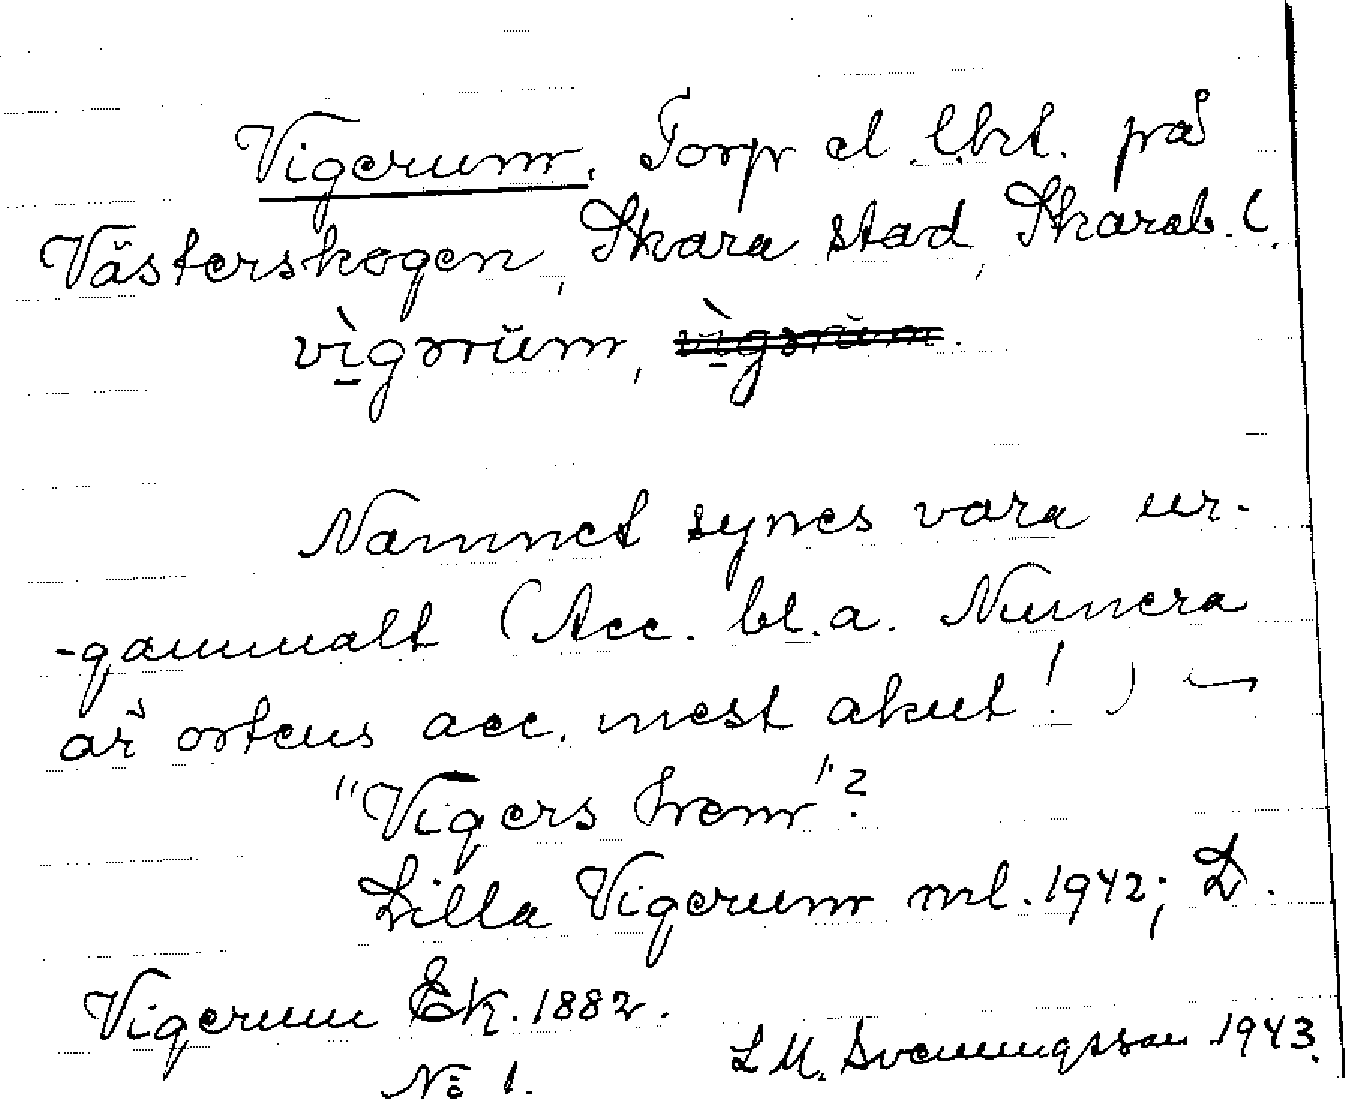 Vigerum. Torp el lht. på
Västerskogen, Skara stad, Skarab. l.
vìgərŭm, vìgərŭm.
Namnet synes vara ur-
-gammalt (Acc. bl.a. Numera
är ortens acc. mest akut!)
"Vigers hem"?
Lilla Vigerum ml. 1942; D.
Vigerum Ek. 1882.
No 1.
L M. Svenungsson 1943.